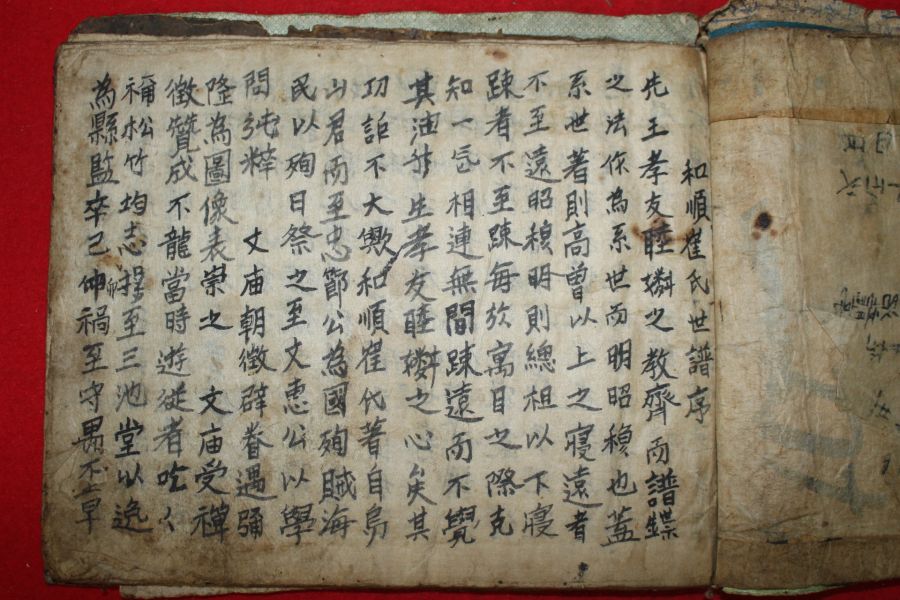 和順崔氏世譜序
先王孝友睦㷠之教齊而譜牒
之法作為系世而明昭穆也蓋
系世著則高曾以上之寢遠者
不至遠昭穆明則總祖以下寢
踈者不至踈每於寓目之際克
知一氣相連無間踈遠而不覺
其油然生孝友睦㷠之心矣其
功詎不大歟和順崔代著自烏
山君而至忠節公為國殉賊海
民以殉日祭之至文惠公以學
問純粹 文庙朝徵辟眷遇彌
隆為圖像表崇之 文庙受禪
徵贊成不龍當時遊從者吃〻
稱松竹均志操至三池堂以逸
為縣監卒己仰禍至守愚不幸